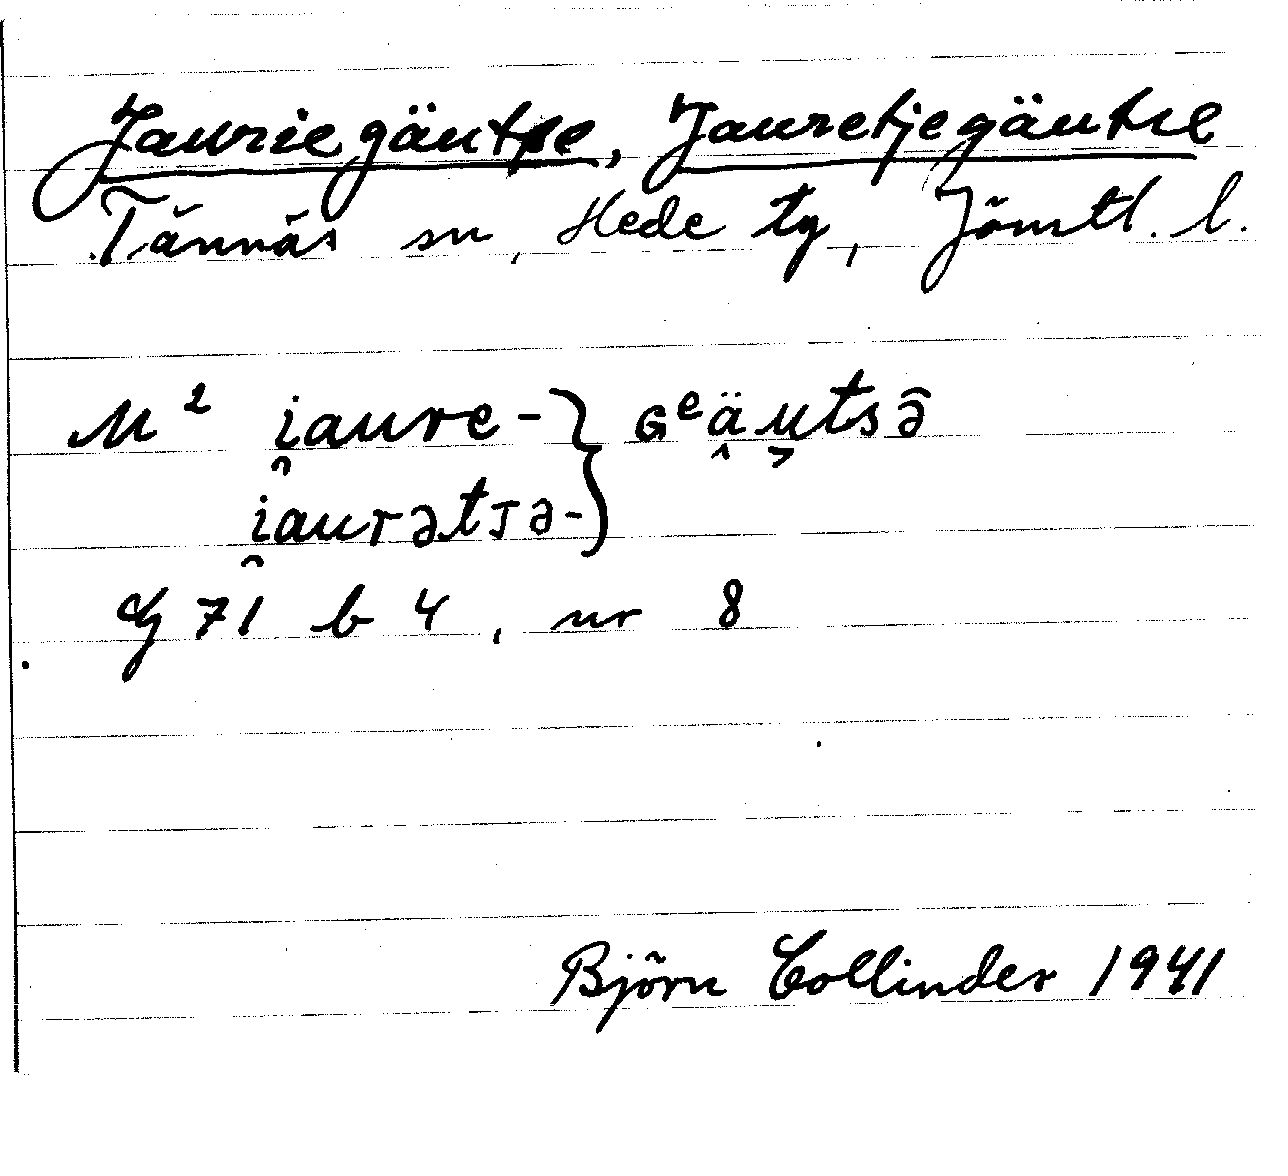 Jauriegäutse, Jauretjegäutse
Tännäs sn, Hede tg, Jämtl. l.
M² i̯aure- } Gᵉäu̯tsə̂
i̯aurətjə- }
G 71 b 4, nr 8
Björn Collinder 1941